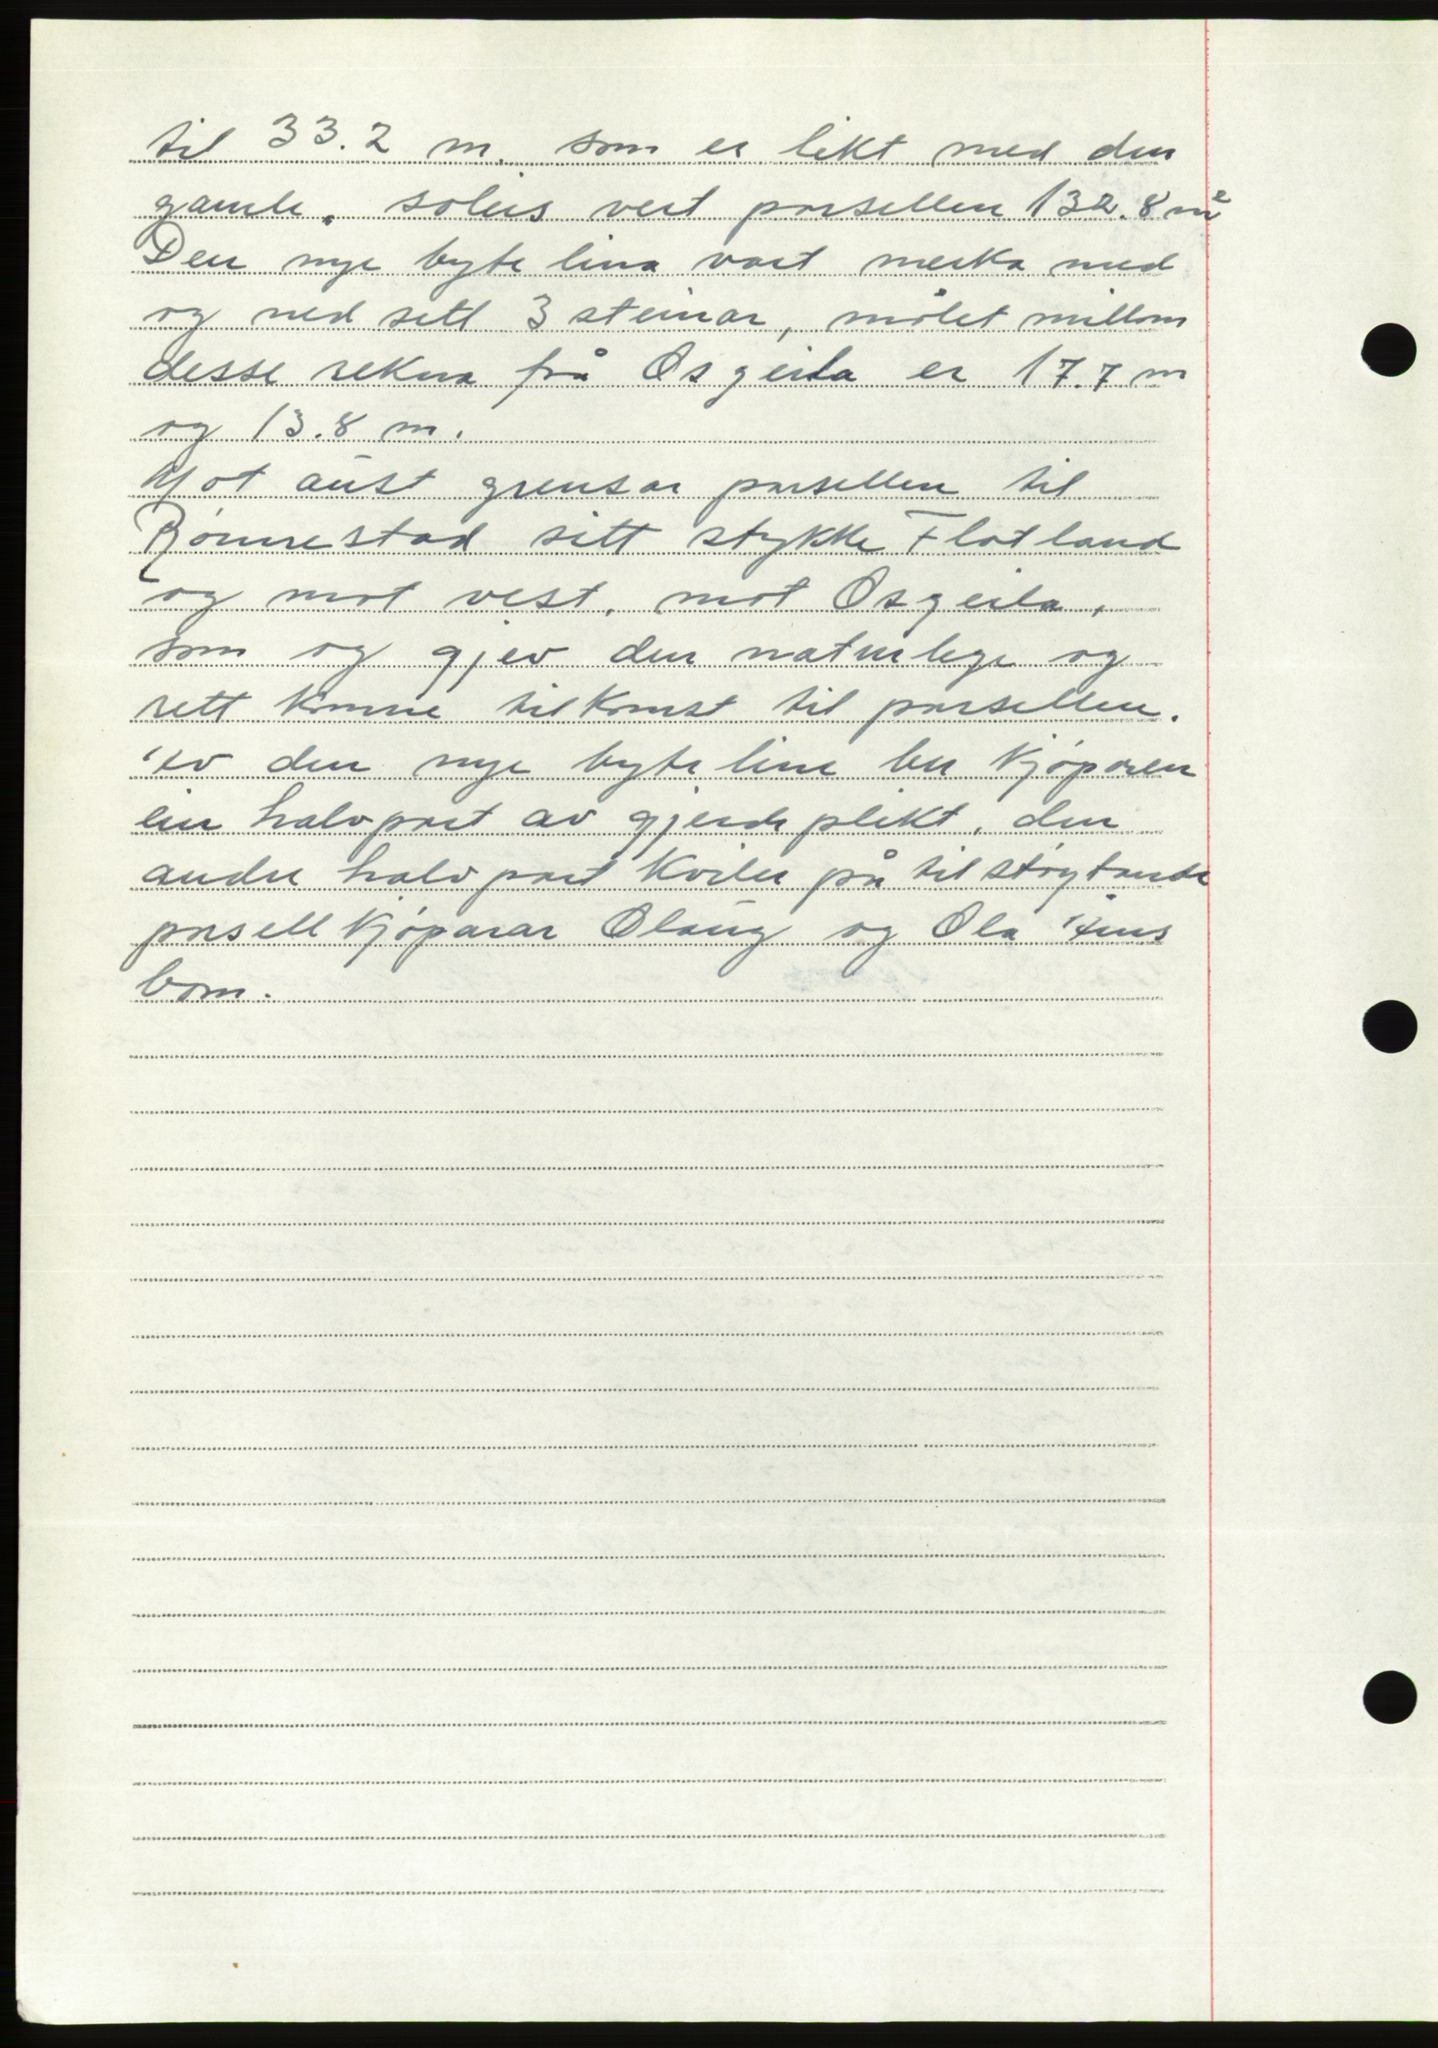 til 33.2 m. som er likt med den
gamle. soleis vert parsellen 132.8 m²
Den nye byte lina vart merka med
og ned sett 3 steinar, målet millom
desse rekna frå Osgeila er 17.7 m
og 13.8 m.
Mot aust grensar parsellen til
Rønnestad sitt stykke Flatland
og mot vest. mot Osgeila,
som og gjev den naturlege og
rett komne tilkomst til parsellen.
Av den nye byte line ber kjøparen
ein halvpart av gjerdeplikt. den
andre halvpart kviler på tilstøytande
parsell kjøparar Olaug og Ola
bom.